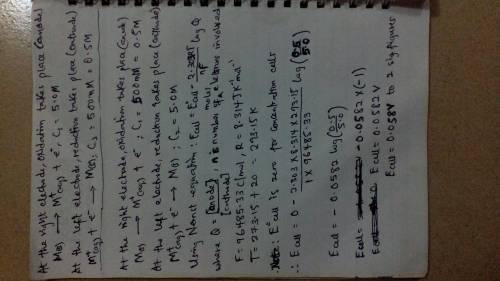 At the right electrode, oxidation takes place (anode)
M(s) → M⁺(aq) + e⁻, C₁ = 5.0M
At the left electrode, reduction takes place (cathode)
M⁺(aq) + e⁻ → M(s); C₂ = 500mM = 0.5M
At the right electrode, oxidation takes place (anode)
M(s) → M⁺(aq) + e⁻, C₁ = 500mM = 0.5M
At the left electrode, reduction takes place (cathode)
M⁺(aq) + e⁻ → M(s) C₂ = 5.0M
Using Nernst equation: Ecell = E°cell - 2.303RT/nF log Q
where Q = [anode]/[cathode], n = number of electrons involved
F = 96485.33 C/mol, R = 8.314 J K⁻¹ mol⁻¹
T = 273.15 + 20 = 293.15 K
Note: E° cell is zero for concentration cells
∴ Ecell = 0 - 2.303 × 8.314 × 293.15/1 × 96485.33 log (0.5/5.0)
Ecell = - 0.0582 log (0.5/5.0)
Ecell = - 0.0582 × (-1)
Ecell = 0.0582V
Ecell = 0.058V to 2 sig figures